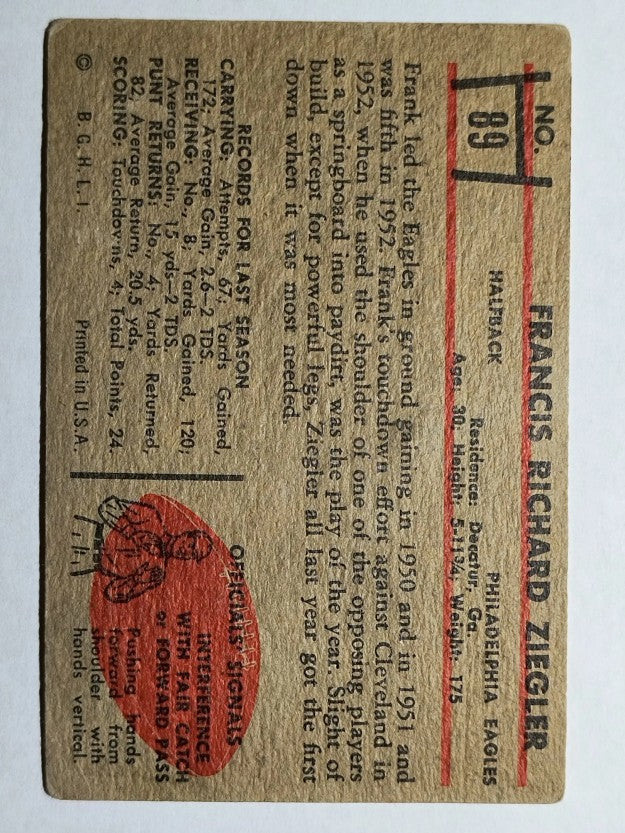 NO.
89
FRANCIS RICHARD ZIEGLER
HALFBACK PHILADELPHIA EAGLES
Residence: Decatur, Ga.
Age: 30; Height: 5-11¾; Weight: 175
Frank led the Eagles in ground gaining in 1950 and in 1951 and
was fifth in 1952. Frank's touchdown effort against Cleveland in
1952, when he used the shoulder of one of the opposing players
as a springboard into paydirt, was the play of the year. Slight of
build, except for powerful legs, Ziegler all last year got the first
down when it was most needed.
RECORDS FOR LAST SEASON
CARRYING: Attempts, 67; Yards Gained,
172; Average Gain, 2.6–2 TDS.
RECEIVING: No., 8; Yards Gained, 120;
Average Gain, 15 yds–2 TDS.
PUNT RETURNS: No., 4; Yards Returned,
82; Average Return, 20.5 yds.
SCORING: Touchdowns, 4; Total Points, 24.
© B. G. H. L. I. Printed in U.S.A.
OFFICIALS' SIGNALS
INTERFERENCE
WITH FAIR CATCH
or FORWARD PASS
Pushing hands
forward from
shoulder with
hands vertical.